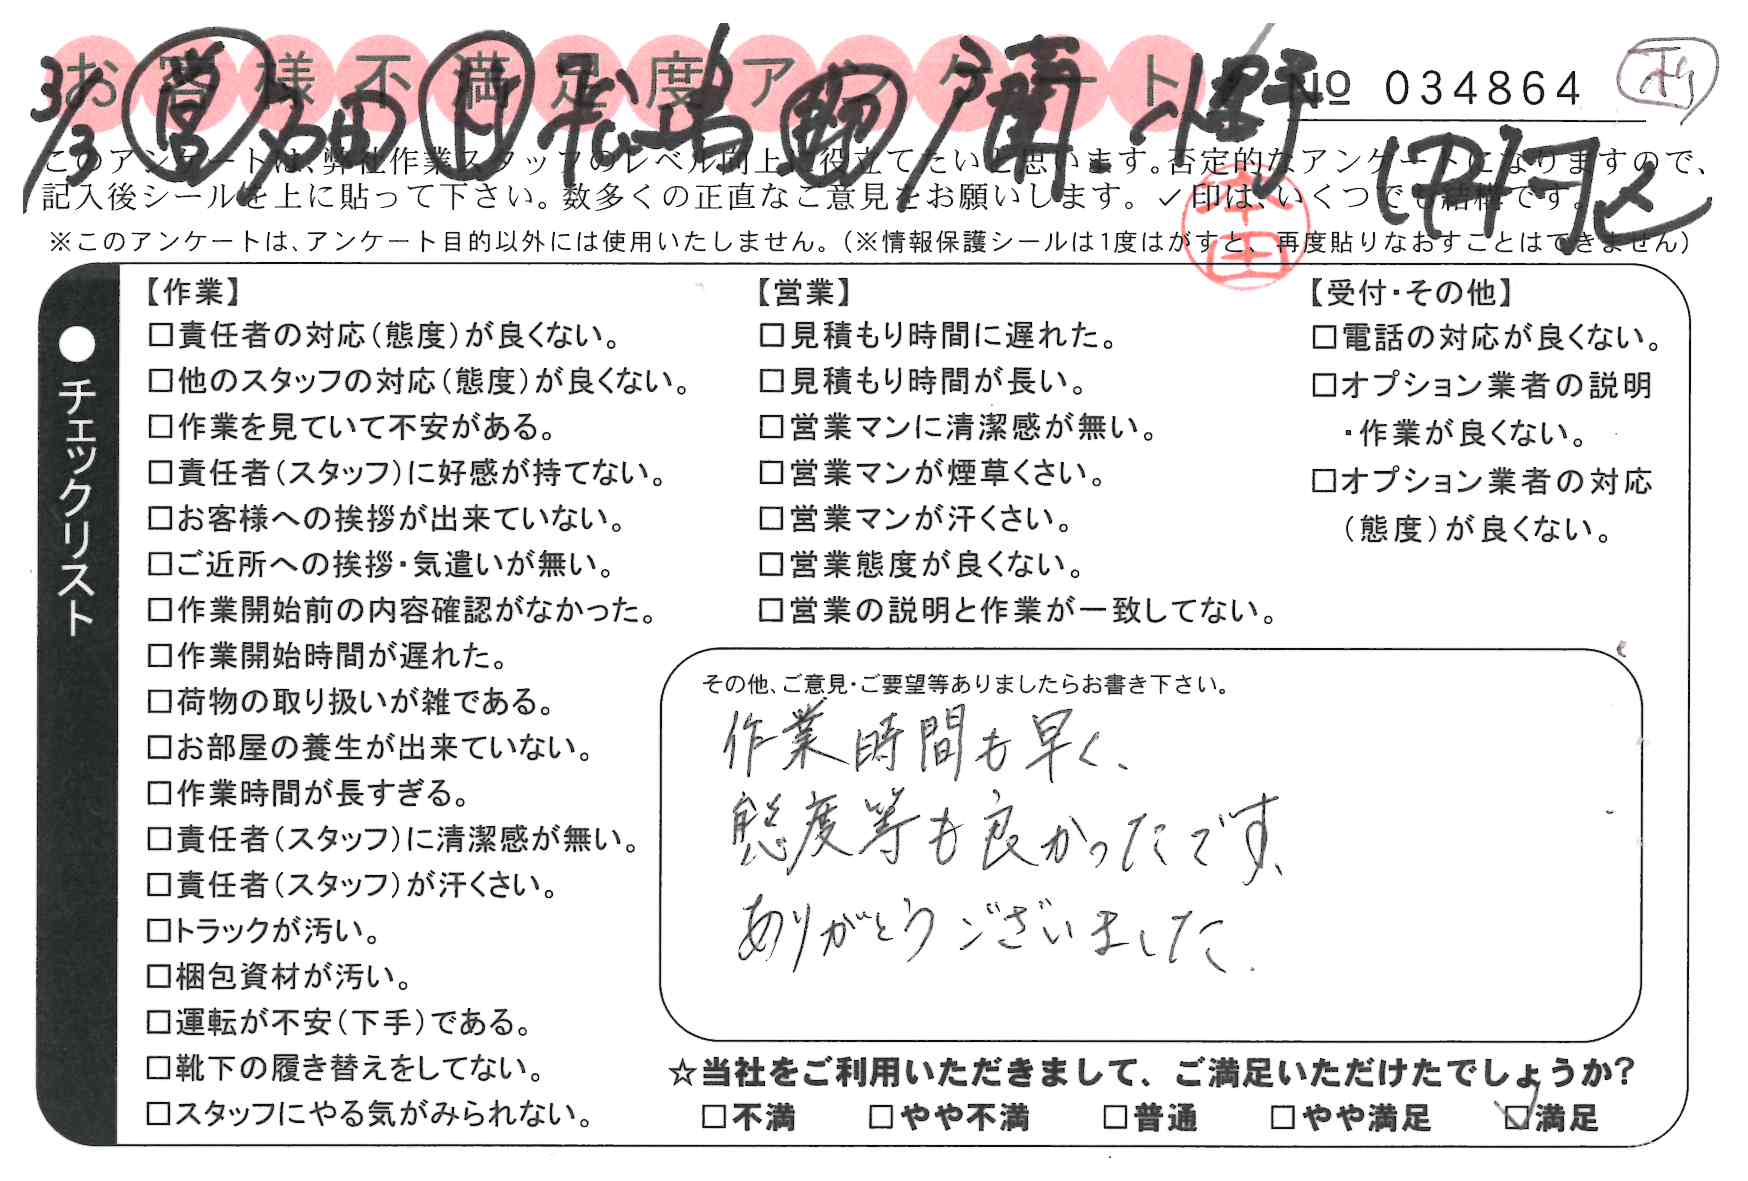 お客様不満足度アンケート
№ 034864
3/3 営 多田 松島
このアンケートは、弊社作業スタッフのレベル向上に役立てたいと思います。否定的なアンケートになりますので、
記入後シールを上に貼って下さい。数多くの正直なご意見をお願いします。✓印は、いくつでも結構です。
※このアンケートは、アンケート目的以外には使用いたしません。（※情報保護シールは1度はがすと、再度貼りなおすことはできません）
本田
●チェックリスト
【作業】
□責任者の対応（態度）が良くない。
□他のスタッフの対応（態度）が良くない。
□作業を見ていて不安がある。
□責任者（スタッフ）に好感が持てない。
□お客様への挨拶が出来ていない。
□ご近所への挨拶・気遣いが無い。
□作業開始前の内容確認がなかった。
□作業開始時間が遅れた。
□荷物の取り扱いが雑である。
□お部屋の養生が出来ていない。
□作業時間が長すぎる。
□責任者（スタッフ）に清潔感が無い。
□責任者（スタッフ）が汗くさい。
□トラックが汚い。
□梱包資材が汚い。
□運転が不安（下手）である。
□靴下の履き替えをしてない。
□スタッフにやる気がみられない。
【営業】
□見積もり時間に遅れた。
□見積もり時間が長い。
□営業マンに清潔感が無い。
□営業マンが煙草くさい。
□営業マンが汗くさい。
□営業態度が良くない。
□営業の説明と作業が一致してない。
【受付・その他】
□電話の対応が良くない。
□オプション業者の説明
・作業が良くない。
□オプション業者の対応
（態度）が良くない。
その他、ご意見・ご要望等ありましたらお書き下さい。
作業時間も早く、
態度等も良かったです、
ありがとうございました.
☆当社をご利用いただきまして、ご満足いただけたでしょうか?
□不満 □やや不満 □普通 □やや満足 ☑満足